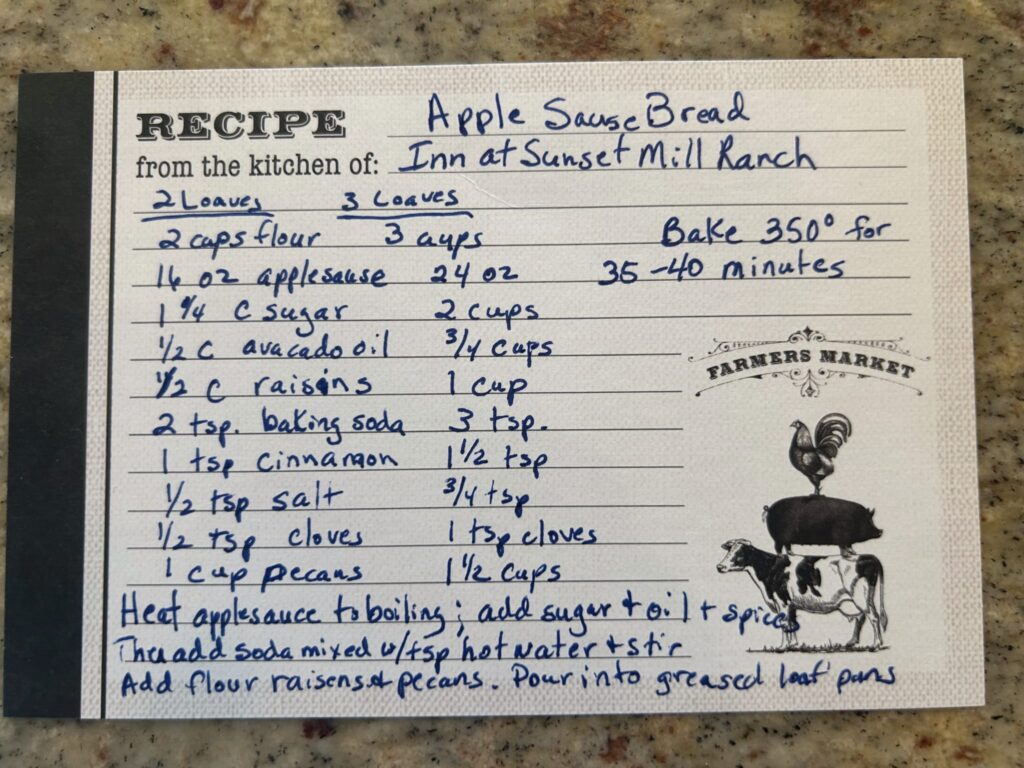 RECIPE Apple Sause Bread
from the kitchen of: Inn at Sunset Mill Ranch
2 Loaves 3 Loaves
2 cups flour 3 cups Bake 350° for
16 oz applesause 24 oz 35-40 minutes
1 1/4 C sugar 2 cups
1/2 C avacado oil 3/4 cups
1/2 C raisins 1 cup
2 tsp. baking soda 3 tsp.
1 tsp cinnamon 1 1/2 tsp
1/2 tsp salt 3/4 tsp
1/2 tsp cloves 1 tsp cloves
1 cup pecans 1 1/2 cups
FARMERS MARKET
Heat applesauce to boiling; add sugar + oil + spices
Then add soda mixed w/tsp hot water + stir
Add flour raisens + pecans. Pour into greased loaf pans